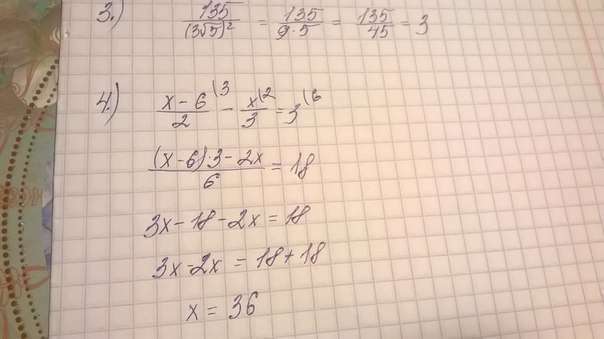 3.) 135/(3√5)² = 135/9·5 = 135/45 = 3
4.) x-6/2 \3 - x/3 \2 = 3 \6
(x-6)·3-2x/6 = 18
3x-18-2x=18
3x-2x = 18+18
x = 36